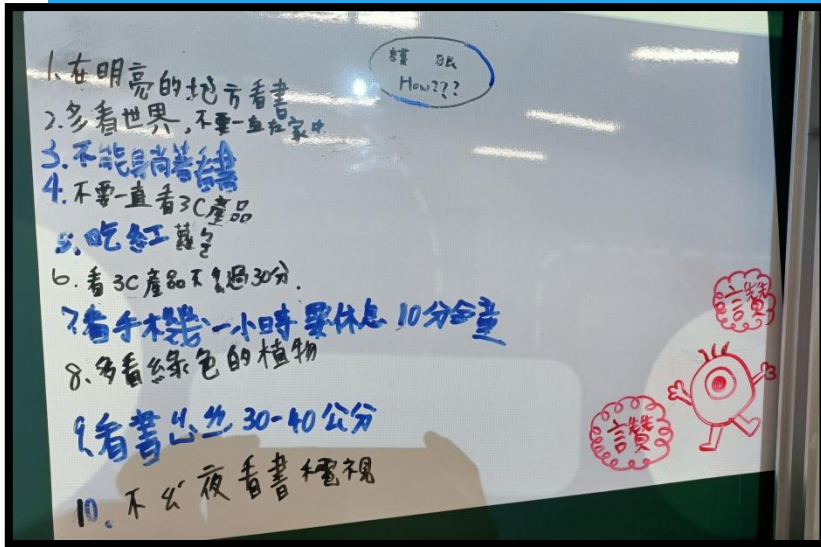 護眼
How???
1、在明亮的地方看書
2.多看世界,不要一直在家中
3.不能躺著看書
4.不要一直看3C產品
5、吃紅蘿蔔
6.看3C產品不 過30分.
7看手機一小時要休息10分鐘
8、多看綠色的植物
9、看書 30-40公分
10、不 夜看書 電視
讚
讚